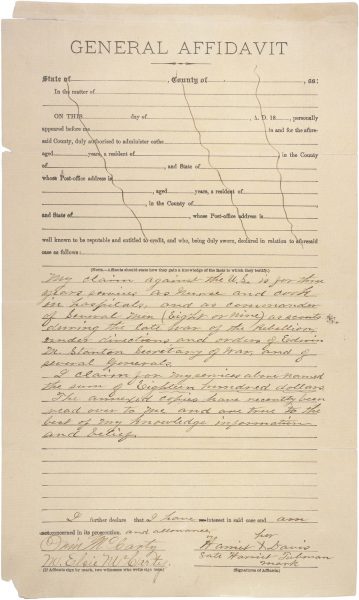 GENERAL AFFIDAVIT
State of , County of , SS:
In the matter of
ON THIS day of A. D. 18 , personally
appeared before me in and for the afore-
said County, duly authorized to administer oaths
aged years, a resident of in the County
of , and State of
whose Post-office address is
, aged years, a resident of
, in the County of
and State of , whose Post-office address is
well known to be reputable and entitled to credit, and who, being duly sworn, declared in relation to aforesaid
case as follows:
[NOTE.—Affiants should state how they gain a knowledge of the facts to which they testify.]
My claim against the U.S. is for three
years services as nurse and cook
in hospitals, and as commander
of several men (eight or nine) as scouts
during the late War of the Rebellion,
under directions and orders of Edwin
M. Stanton Secretary of War, and of
several Generals.
I claim for my services above named
the sum of Eighteen hundred dollars.
The annexed copies have recently been
read over to me and are true to the
best of my knowledge information
and belief.
I further declare that I have interest in said case and am
concerned in its prosecution. and allowance.
her
Harriet X Davis
late Harriet Tubman
mark
(If Affiants sign by mark, two witnesses who write sign here)
(Signatures of Affiants)